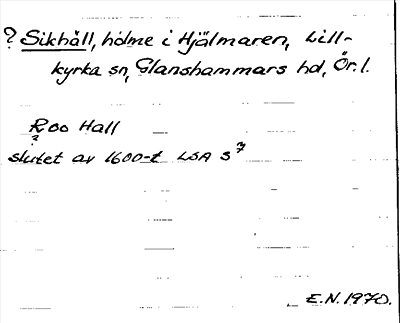 ? Sikhäll, holme i Hjälmaren, Lill-
kyrka sn, Glanshammars hd, Ör. l.
Roo Hall
?
slutet av 1600-t LSA S 7
E.N. 1970.